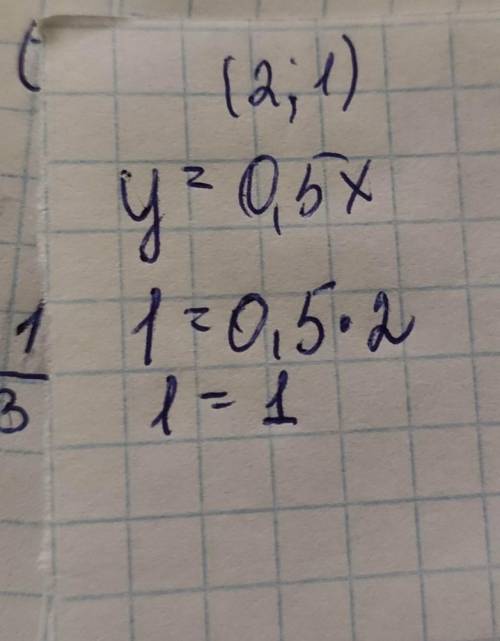 (
(2; 1)
y = 0,5x
1 = 0,5 · 2
1 = 1
1
3